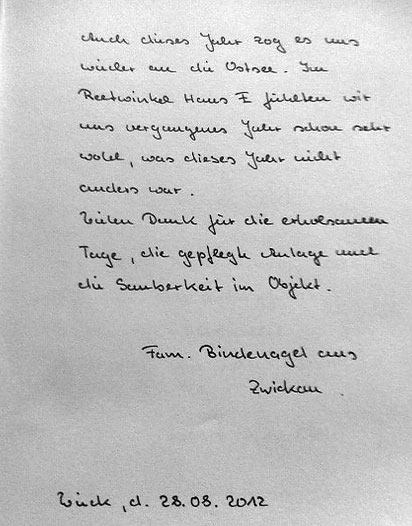 Auch dieses Jahr zog es uns
wieder an die Ostsee. Im
Reetwinkel Haus I fühlten wir
uns vergangenes Jahr schon sehr
wohl, was dieses Jahr nicht
anders war.
Vielen Dank für die erholsamen
Tage, die gepflegte Anlage und
die Sauberkeit im Objekt.
Fam. Bindenagel aus
Zwickau.
Wieck, d. 28.08.2012